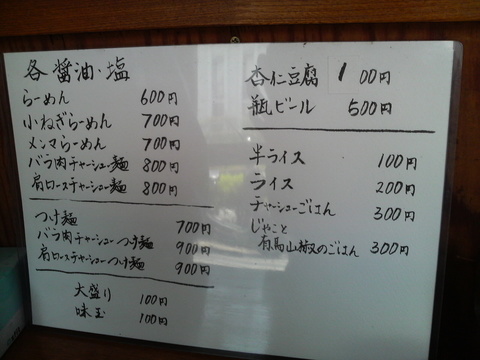 各醤油・塩
らーめん 600円
小ねぎらーめん 700円
メンマらーめん 700円
バラ肉チャーシュー麺 800円
肩ロースチャーシュー麺 800円
つけ麺 700円
バラ肉チャーシューつけ麺 900円
肩ロースチャーシューつけ麺 900円
大盛り 100円
味玉 100円
杏仁豆腐 100円
瓶ビール 500円
半ライス 100円
ライス 200円
チャーシューごはん 300円
じゃこと
有馬山椒のごはん 300円